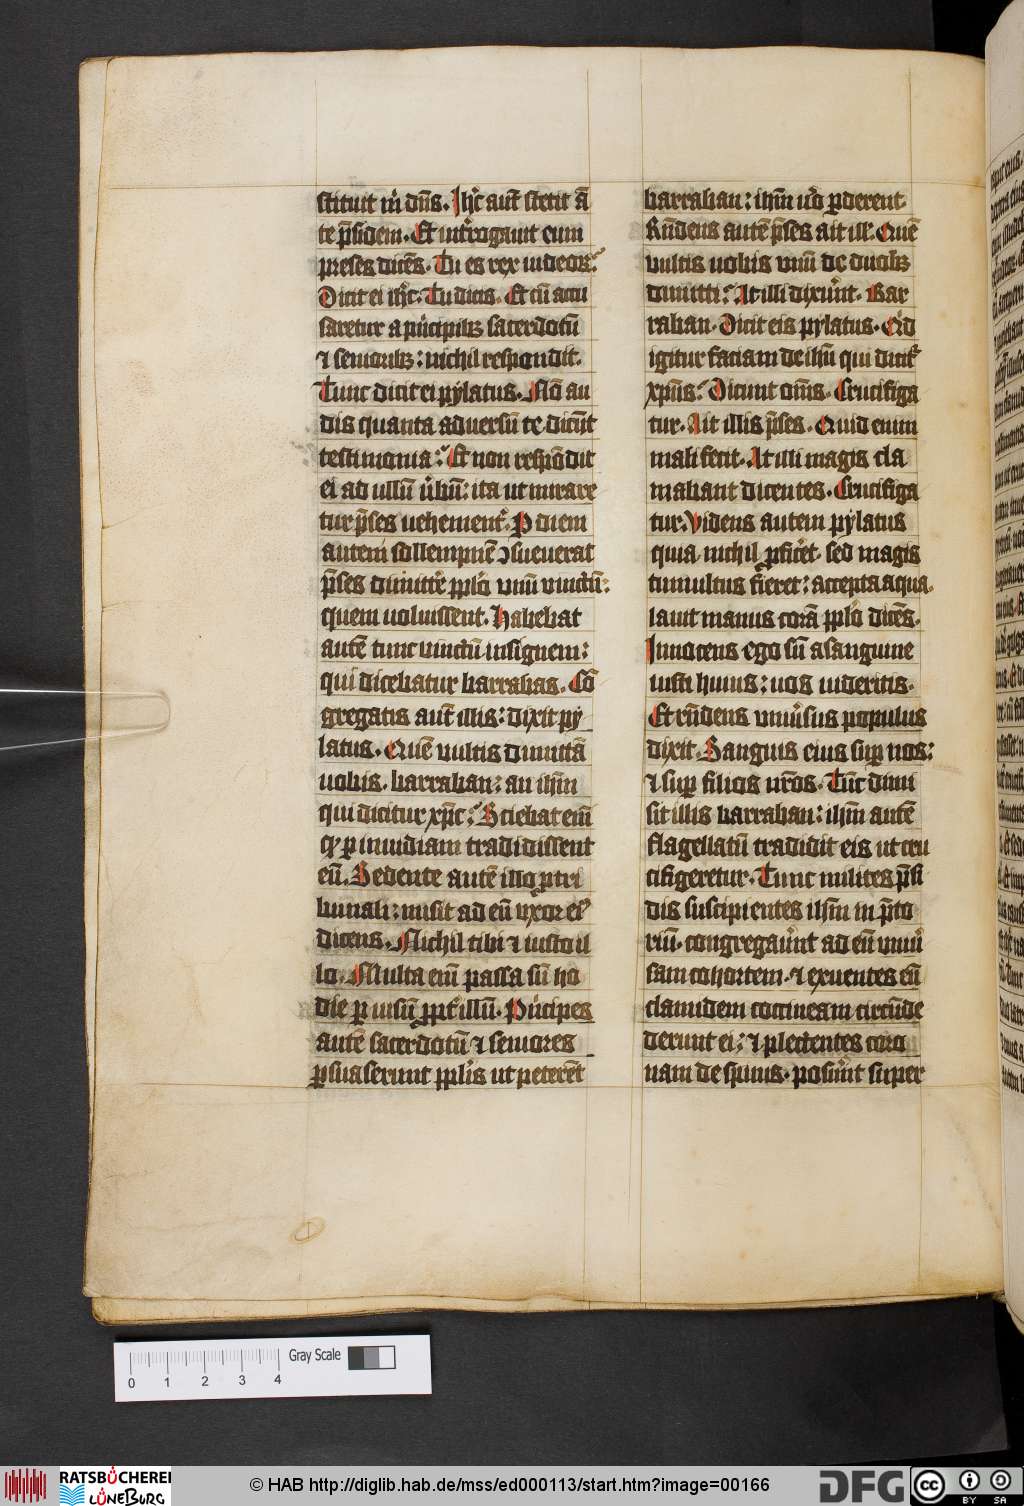 stituit m̅ dn̅s. Ihc̅ aut̅ stetit a̅
te p̅sidem. Et int̅rogauit eum
preses dice̅s. Tu es rex iudeor̅?
Dicit ei ihc̅. Tu dicis. Et cu̅ accu
saretur a pͥncipib; sacerdotu̅
⁊ seniorib;: nichil respondit.
Tunc dicit ei pylatus. No̅ au
dis quanta aduersu̅ te dicu̅t
testimonia? Et non respo̅dit
ei ad ullu̅ u̅bu̅: ita ut mirare
tur p̅ses uehement̅. P̲ diem
autem sollempne̅ ɔsueuerat
p̅ses dimitte̅ pp̅lo vnu̅ vinctu̅:
quem uoluissent. Habebat
aute̅ tunc vinctu̅ insignem:
qui dicebatur barrabas. Co̅
gregatis aut̅ illis: dixit py
latus. Que̅ vultis dimitta̅
uobis. barraban: an ihm̅
qui dicitur xp̅c? Sciebat eni̅
qͥ p̲ inuidiam tradidissent
eu̅. Sedente aute̅ illo p̲ tri
bunali: misit ad eu̅ vxor eꝰ
dicens. Nichil tibi ⁊ iusto il
lo. Multa eni̅ passa su̅ ho
die p̲ uisu̅ pp̅t̅ illu̅. Pͥncipes
aute̅ sacerdotu̅ ⁊ seniores
p̲suaserunt pp̅lis ut petere̅t
barraban: ihm̅ u̅o p̲derent.
Rn̅dens aute̅ p̅ses ait ill̅. Que̅
vultis uobis vnu̅ de duob;
dimitti? At illi dixu̅nt. Bar
raban. Dicit eis pylatus. Qͥd
igitur faciam de ihu̅ qui dicit̅
xpu̅s? Dicunt om̅s. Crucifiga
tur. Ait illis p̅ses. Quid enim
mali fecit. At illi magis cla
mabant dicentes. Crucifiga
tur. Videns autem pylatus
quia nichil p̲fice̅t. sed magis
tumultus fieret: accepta aqua.
lauit manus cora̅ pp̅lo dice̅s.
Innocens ego su̅ a sanguine
iusti huius: uos uideritis.
Et rn̅dens vniu̅sus populus
dixit. Sanguis eius sup̲ nos:
⁊ sup̲ filios nr̅os. Tu̅c dimi
sit illis barraban: ihm̅ aute̅
flagellatu̅ tradidit eis ut cru
cifigeretur. Tunc milites p̅si
dis suscipientes ihm̅ in p̅to
riu̅. congregau̅nt ad eu̅ vniu̅
sam cohortem. ⁊ exuentes eu̅
clamidem coccineam circu̅de
derunt ei: ⁊ plectentes coro
nam de spinis. posu̅nt super
Gray Scale
0 1 2 3 4
RATSBÜCHEREI
LÜNEBURG
© HAB http://diglib.hab.de/mss/ed000113/start.htm?image=00166
DFG
cc
BY SA